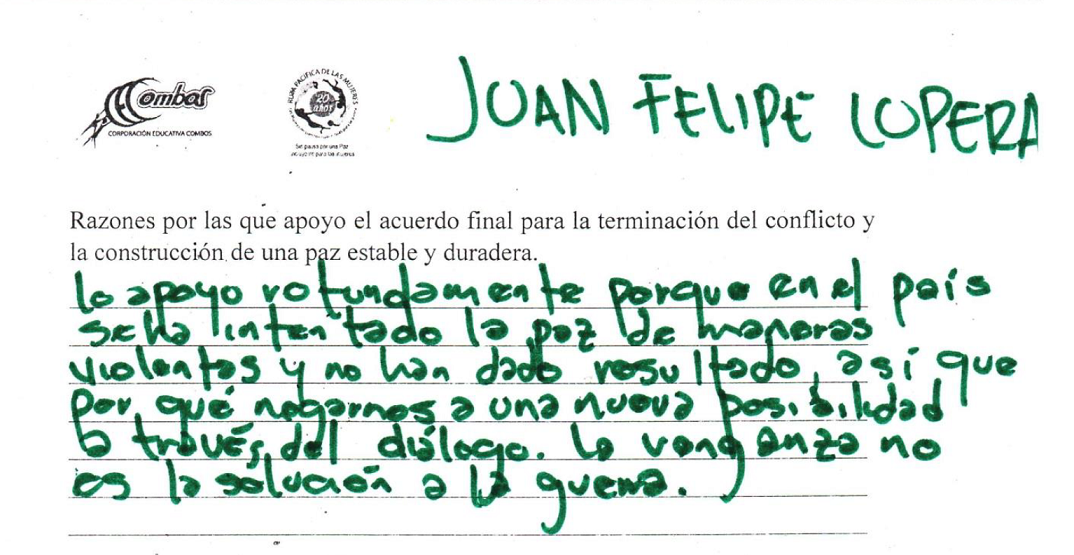 JUAN FELIPE LOPERA
Combos
CORPORACIÓN EDUCATIVA COMBOS
RUTA PACÍFICA DE LAS MUJERES
20 años
Razones por las que apoyo el acuerdo final para la terminación del conflicto y
la construcción de una paz estable y duradera.
Lo apoyo rotundamente porque en el país
se ha intentado la paz de maneras
violentas y no han dado resultado, así que
por qué negarnos a una nueva posibilidad
a través del diálogo. La venganza no
es la solución a la guerra.